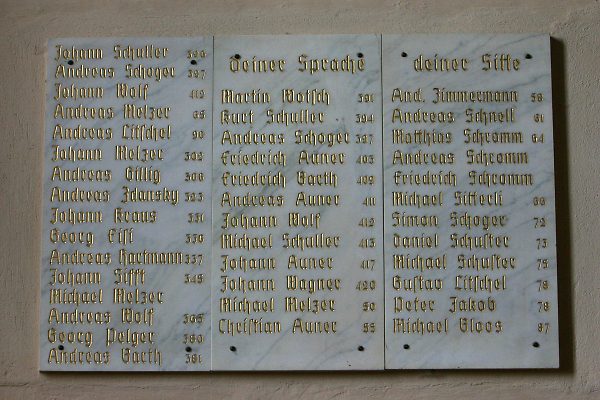 Johann Schuller 326
Andreas Schoger 327
Johann Wolf 413
Andreas Melzer 65
Andreas Litschel 90
Johann Melzer 302
Andreas Gillig 308
Andreas Zdansky 323
Johann Kraus 331
Georg Eisi 336
Andreas Hartmann 337
Johann Sifft 345
Michael Melzer
Andreas Wolf 365
Georg Pelger 380
Andreas Barth 381
deiner Sprache
Martin Wotsch 391
Kurt Schuller 394
Andreas Schoger 397
Friedrich Auner 403
Friedrich Barth 409
Andreas Auner 411
Johann Wolf 413
Michael Schuller 415
Johann Auner 417
Johann Wagner 420
Michael Melzer 50
Christian Auner 55
deiner Sitte
And. Zimmermann 56
Andreas Schnell 61
Matthias Schramm 64
Andreas Schramm
Friedrich Schramm
Michael Sitterli 66
Simon Schoger 72
Daniel Schuster 73
Michael Schuster 75
Gustav Litschel 78
Peter Jakob 79
Michael Gloos 87